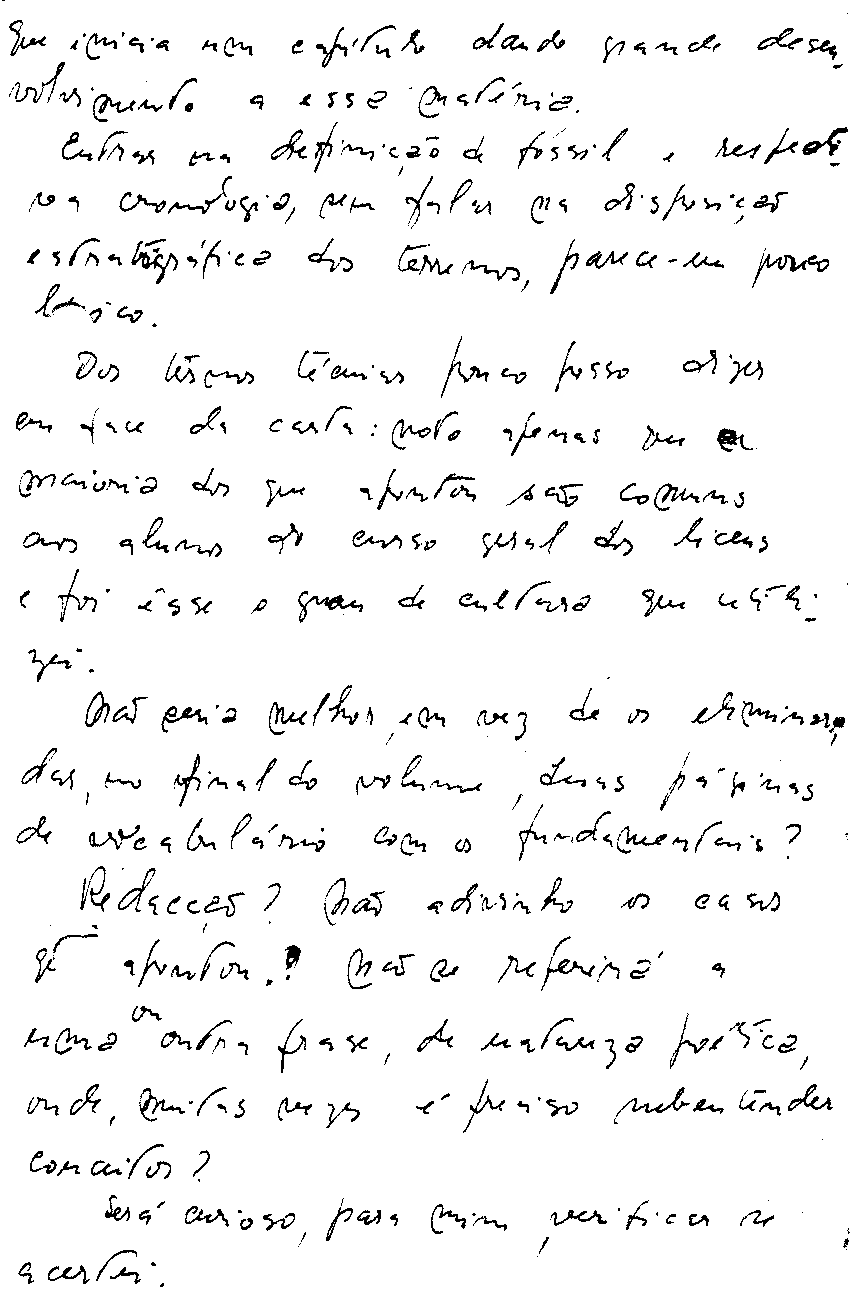 que inicia um capítulo dando grande desen-
volvimento a essa matéria.
Entrar na definição de fóssil e respecti-
va cronologia, sem falar na disposição
estratigráfica dos terrenos, parece-me pouco
lógico.
Dos têrmos técnicos pouco posso dizer
em face da carta: noto apenas que a
maioria dos que apontou são comuns
aos alunos do curso geral dos liceus
e foi êsse o grau de cultura que utili-
zei.
Não seria melhor, em vez de os eliminar,
dar, no final do volume, duas páginas
de vocabulário com os fundamentais?
Redacção? Não adivinho os casos
q̃ apontou.? Não se referirá a
uma ou outra frase, de natureza poética,
onde, muitas vezes é preciso subentender
conceitos?
Será curioso, para mim, verificar se
acertei.